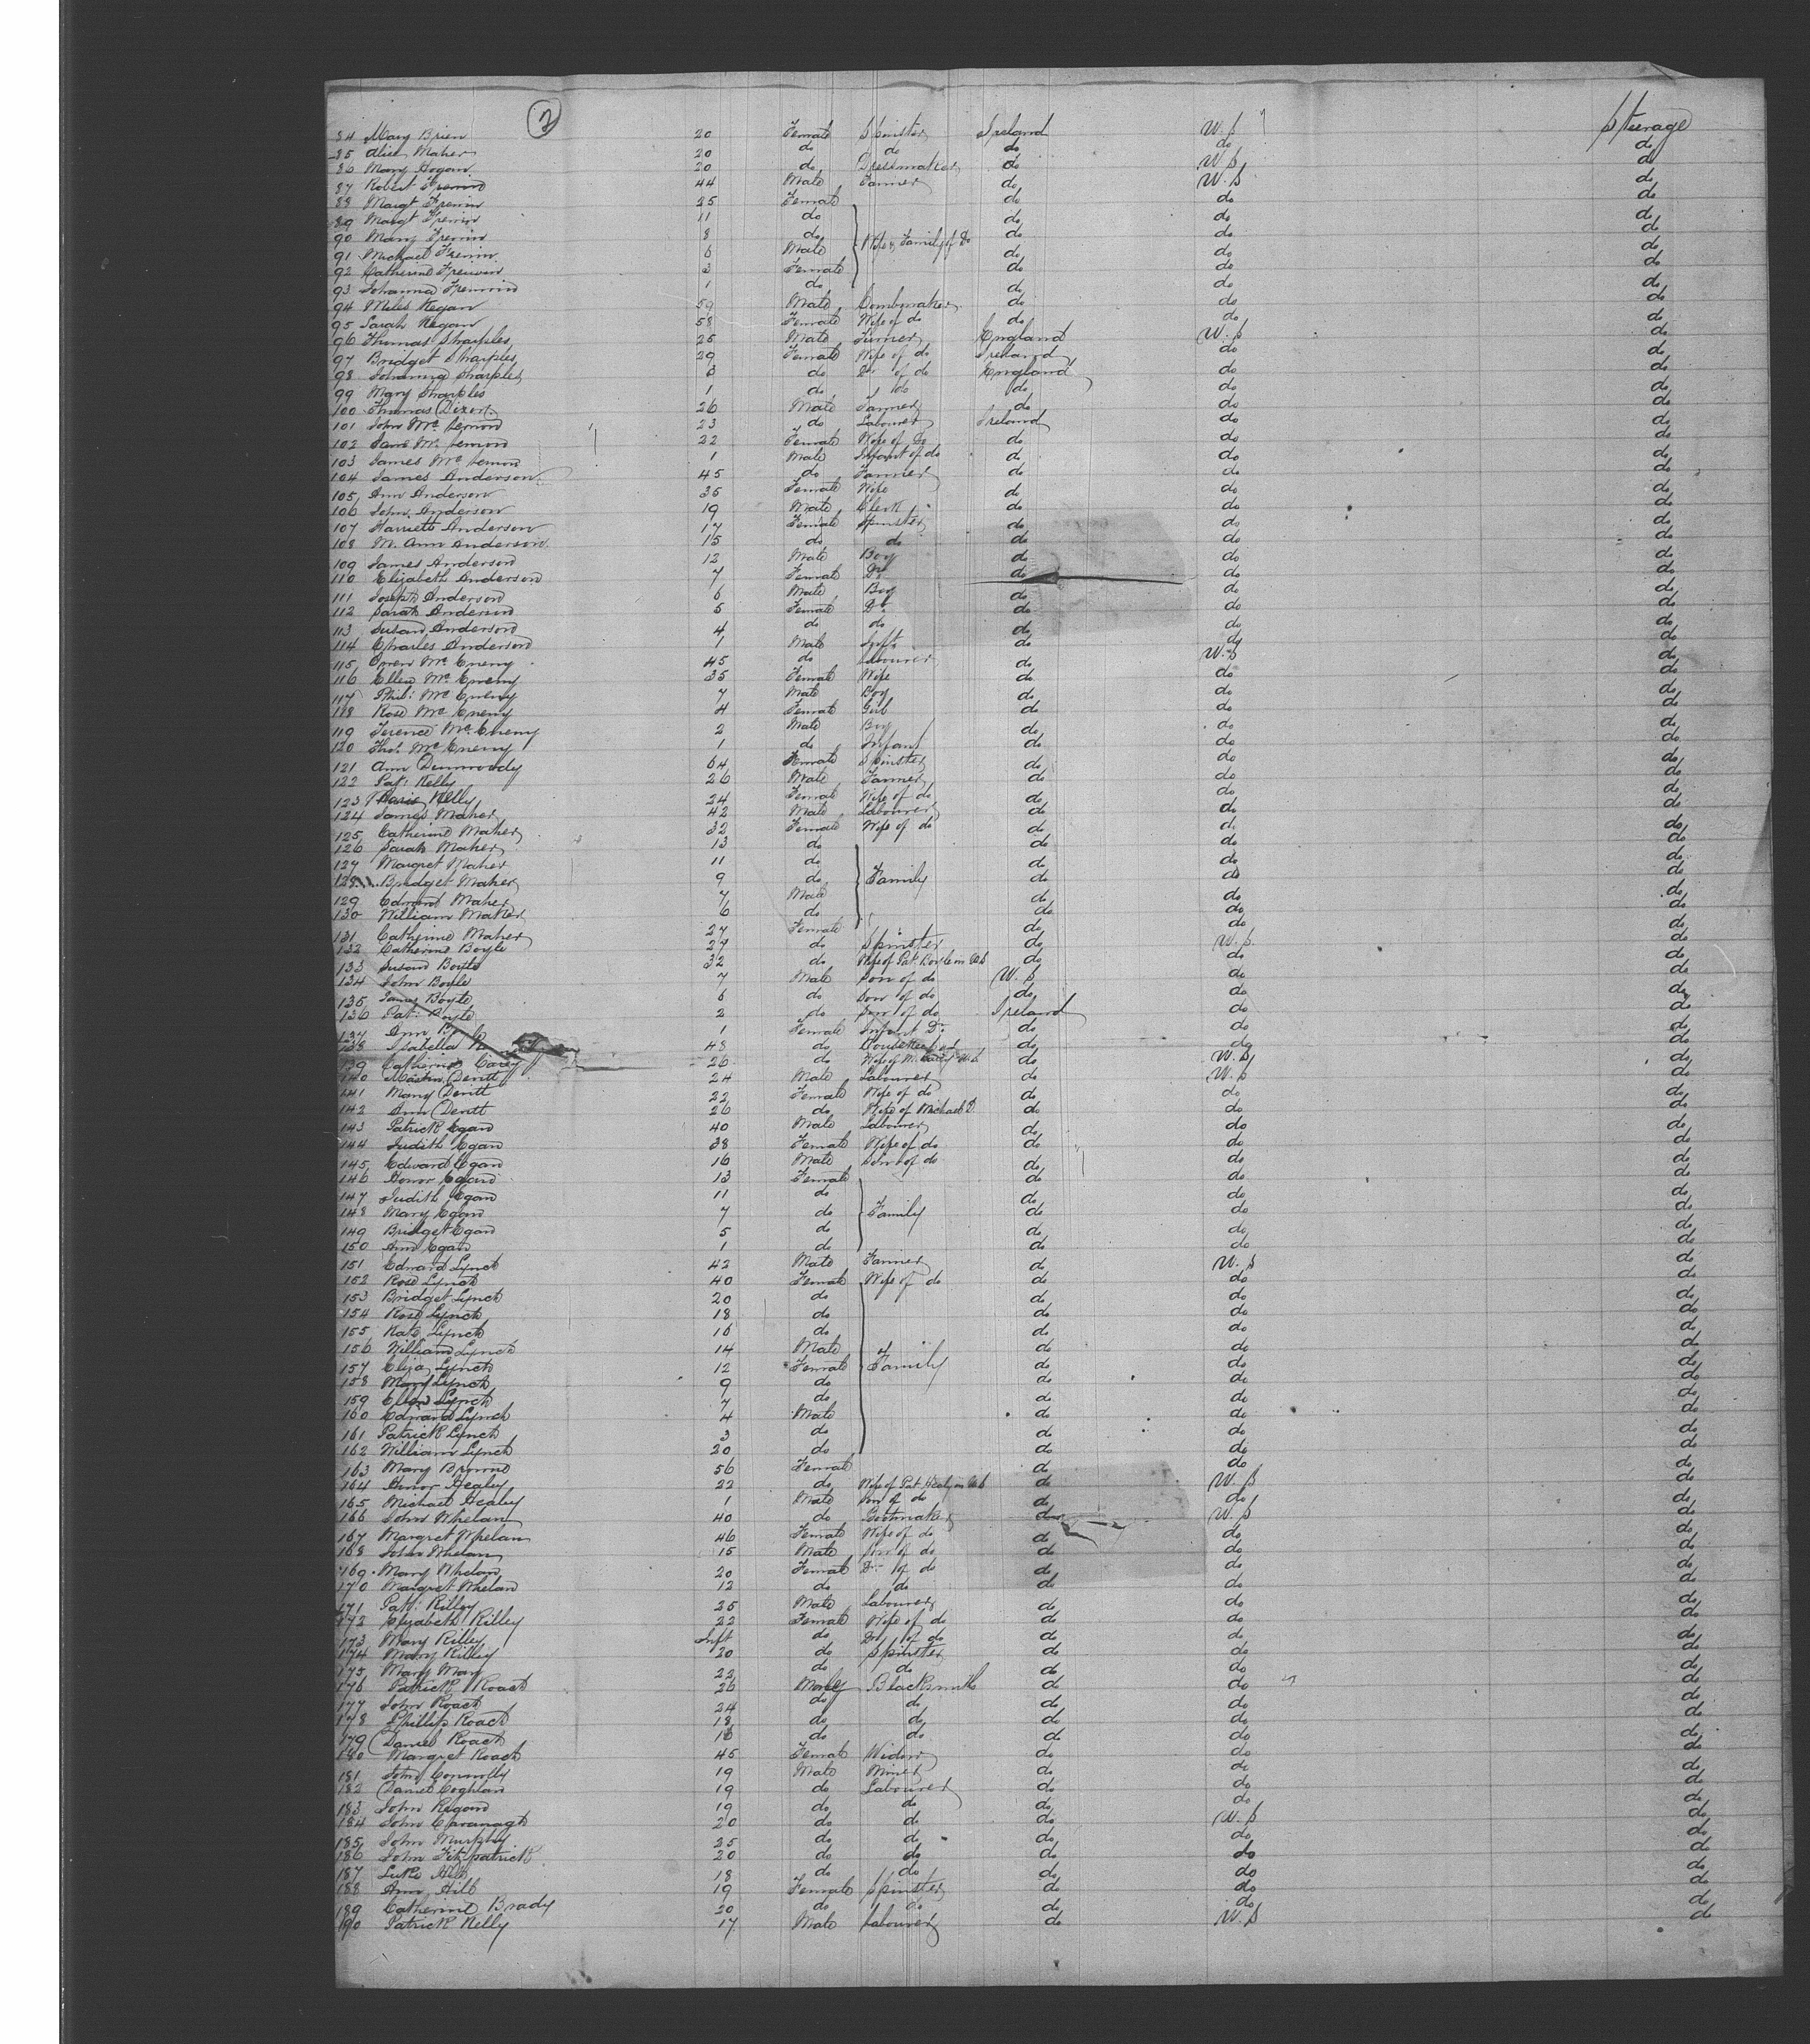 2
Steerage
84 Mary Brien 20 Female Spinster Ireland U.S
85 Alice Maher 20 do do do do do
86 Mary Hogan 20 do Dressmaker do U.S do
87 Robert 44 Male Farmer do U.S do
88 Margt 25 Female do do do
89 Margt 11 do do do do
90 Mary 8 do Wife & Family of Do do do do
91 Michael 6 Male do do do
92 Catherine 3 Female do do do
93 Johanna 1 do do do do
94 Miles Kegan 59 Male Combmaker do do do
95 Sarah Kegan 58 Female Wife of do do do do
96 Thomas Sharples 25 Male Turner England U.S do
97 Bridget Sharples 29 Female Wife of do Ireland do do
98 Johanna Sharples 3 do Dr of do England do do
99 Mary Sharples 1 do do do do do
100 Thomas Dixon 26 Male Farmer do do do
101 John Mc Lemon 23 do Labourer Ireland do do
102 Jane Mc Lemon 22 Female Wife of Do do do do
103 James Mc Lemon 1 Male Infant of do do do do
104 James Anderson 45 do Farmer do do do
105 Ann Anderson 35 Female Wife do do do
106 John Anderson 19 Male Clerk do do do
107 Harriett Anderson 17 Female Spinster do do do
108 M. Ann Anderson 15 do do do do do
109 James Anderson 12 Male Boy do do do
110 Elizabeth Anderson 7 Female Dr do do do
111 Joseph Anderson 6 Male Boy do do do
112 Sarah Anderson 5 Female Dr do do do
113 Susan Anderson 4 do do do do do
114 Charles Anderson 1 Male Inft do do do
115 Owen Mc Enemy 45 do Labourer do U.S do
116 Ellen Mc Enemy 35 Female Wife do do do
117 Phil: Mc Enemy 7 Male Boy do do do
118 Rose Mc Enemy 4 Female Girl do do do
119 Terence Mc Enemy 2 Male Boy do do do
120 Thos. Mc Enemy 1 do Infant do do do
121 Ann Dunwoody 64 Female Spinster do do do
122 Pat: Kelly 26 Male Farmer do do do
123 Kelly 24 Female Wife of do do do do
124 James Maher 42 Male Labourer do do do
125 Catherine Maher 32 Female Wife of do do do do
126 Sarah Maher 13 do do do do
127 Margret Maher 11 do do do do
128 Bridget Maher 9 do Family do do do
129 Edward Maher 7 Male do do do
130 William Maher 6 do do do do
131 Catherine Maher 27 Female do do do
132 Catherine Boyle 27 do Spinster do U.S. do
133 Susan Boyle 32 do Wife of Pat. Boyle in U.S do do do
134 John Boyle 7 Male Son of do U.S do do
135 James Boyle 6 do Son of do do do do
136 Pat: Boyle 2 do Son of do Ireland do do
137 Ann 1 Female Infant Dr do do do
138 Isabella 48 do Housekeeper do do do
139 Catherine Carey 26 do Wife of M. Carey U.S do U.S do
140 Martin Devitt 24 Male Labourer do U.S do
141 Mary Devitt 22 Female Wife of do do do do
142 Ann Devitt 26 do Wife of Michael D. do do do
143 Patrick Egan 40 Male Labourer do do do
144 Judith Egan 38 Female Wife of do do do do
145 Edward Egan 16 Male Son of do do do do
146 Honor Egan 13 Female do do do
147 Judith Egan 11 do do do do
148 Mary Egan 7 do Family do do do
149 Bridget Egan 5 do do do do
150 Ann Egan 1 do do do do
151 Edward Lynch 42 Male Farmer do U.S do
152 Rose Lynch 40 Female Wife of do do do do
153 Bridget Lynch 20 do do do do
154 Rose Lynch 18 do do do do
155 Kate Lynch 16 do do do do
156 William Lynch 14 Male do do do
157 Eliza Lynch 12 Female Family do do do
158 Mary Lynch 9 do do do do
159 Ellen Lynch 7 do do do do
160 Edward Lynch 4 Male do do do
161 Patrick Lynch 3 do do do do
162 William Lynch 20 do do do do
163 Mary Browne 56 Female do do do
164 Honor Healey 22 do Wife of Pat Healy in U.S do U.S do
165 Michael Healey 1 Male Son of do do do do
166 John Whelan 40 do Bootmaker do U.S do
167 Margret Whelan 46 Female Wife of do do do do
168 John Whelan 15 Male Son of do do do do
169 Mary Whelan 20 Female Dr of do do do do
170 Margret Whelan 12 do do do do do
171 Patt: Rilley 25 Male Labourer do do do
172 Elizabeth Rilley 22 Female Wife of do do do do
173 Mary Rilley Inft do Dr of do do do do
174 Mary Rilley 20 do Spinster do do do
175 Mary May 22 do do do do do
176 Patrick Roach 26 Male Blacksmith do do do
177 John Roach 24 do do do do do
178 Phillip Roach 18 do do do do do
179 Daniel Roach 16 do do do do do
180 Margret Roach 45 Female Widow do do do
181 John Connolly 19 Male Miner do do do
182 Daniel Coghlan 19 do Labourer do do do
183 John Regan 19 do do do do do
184 John Cavanagh 20 do do do U.S do
185 John Murphy 25 do do do do do
186 John Fitzpatrick 20 do do do do do
187 Luke Hill 18 do do do do do
188 Ann Hill 19 Female Spinster do do do
189 Catherine Brady 20 do do do do do
190 Patrick Kelly 17 Male Labourer do U.S do